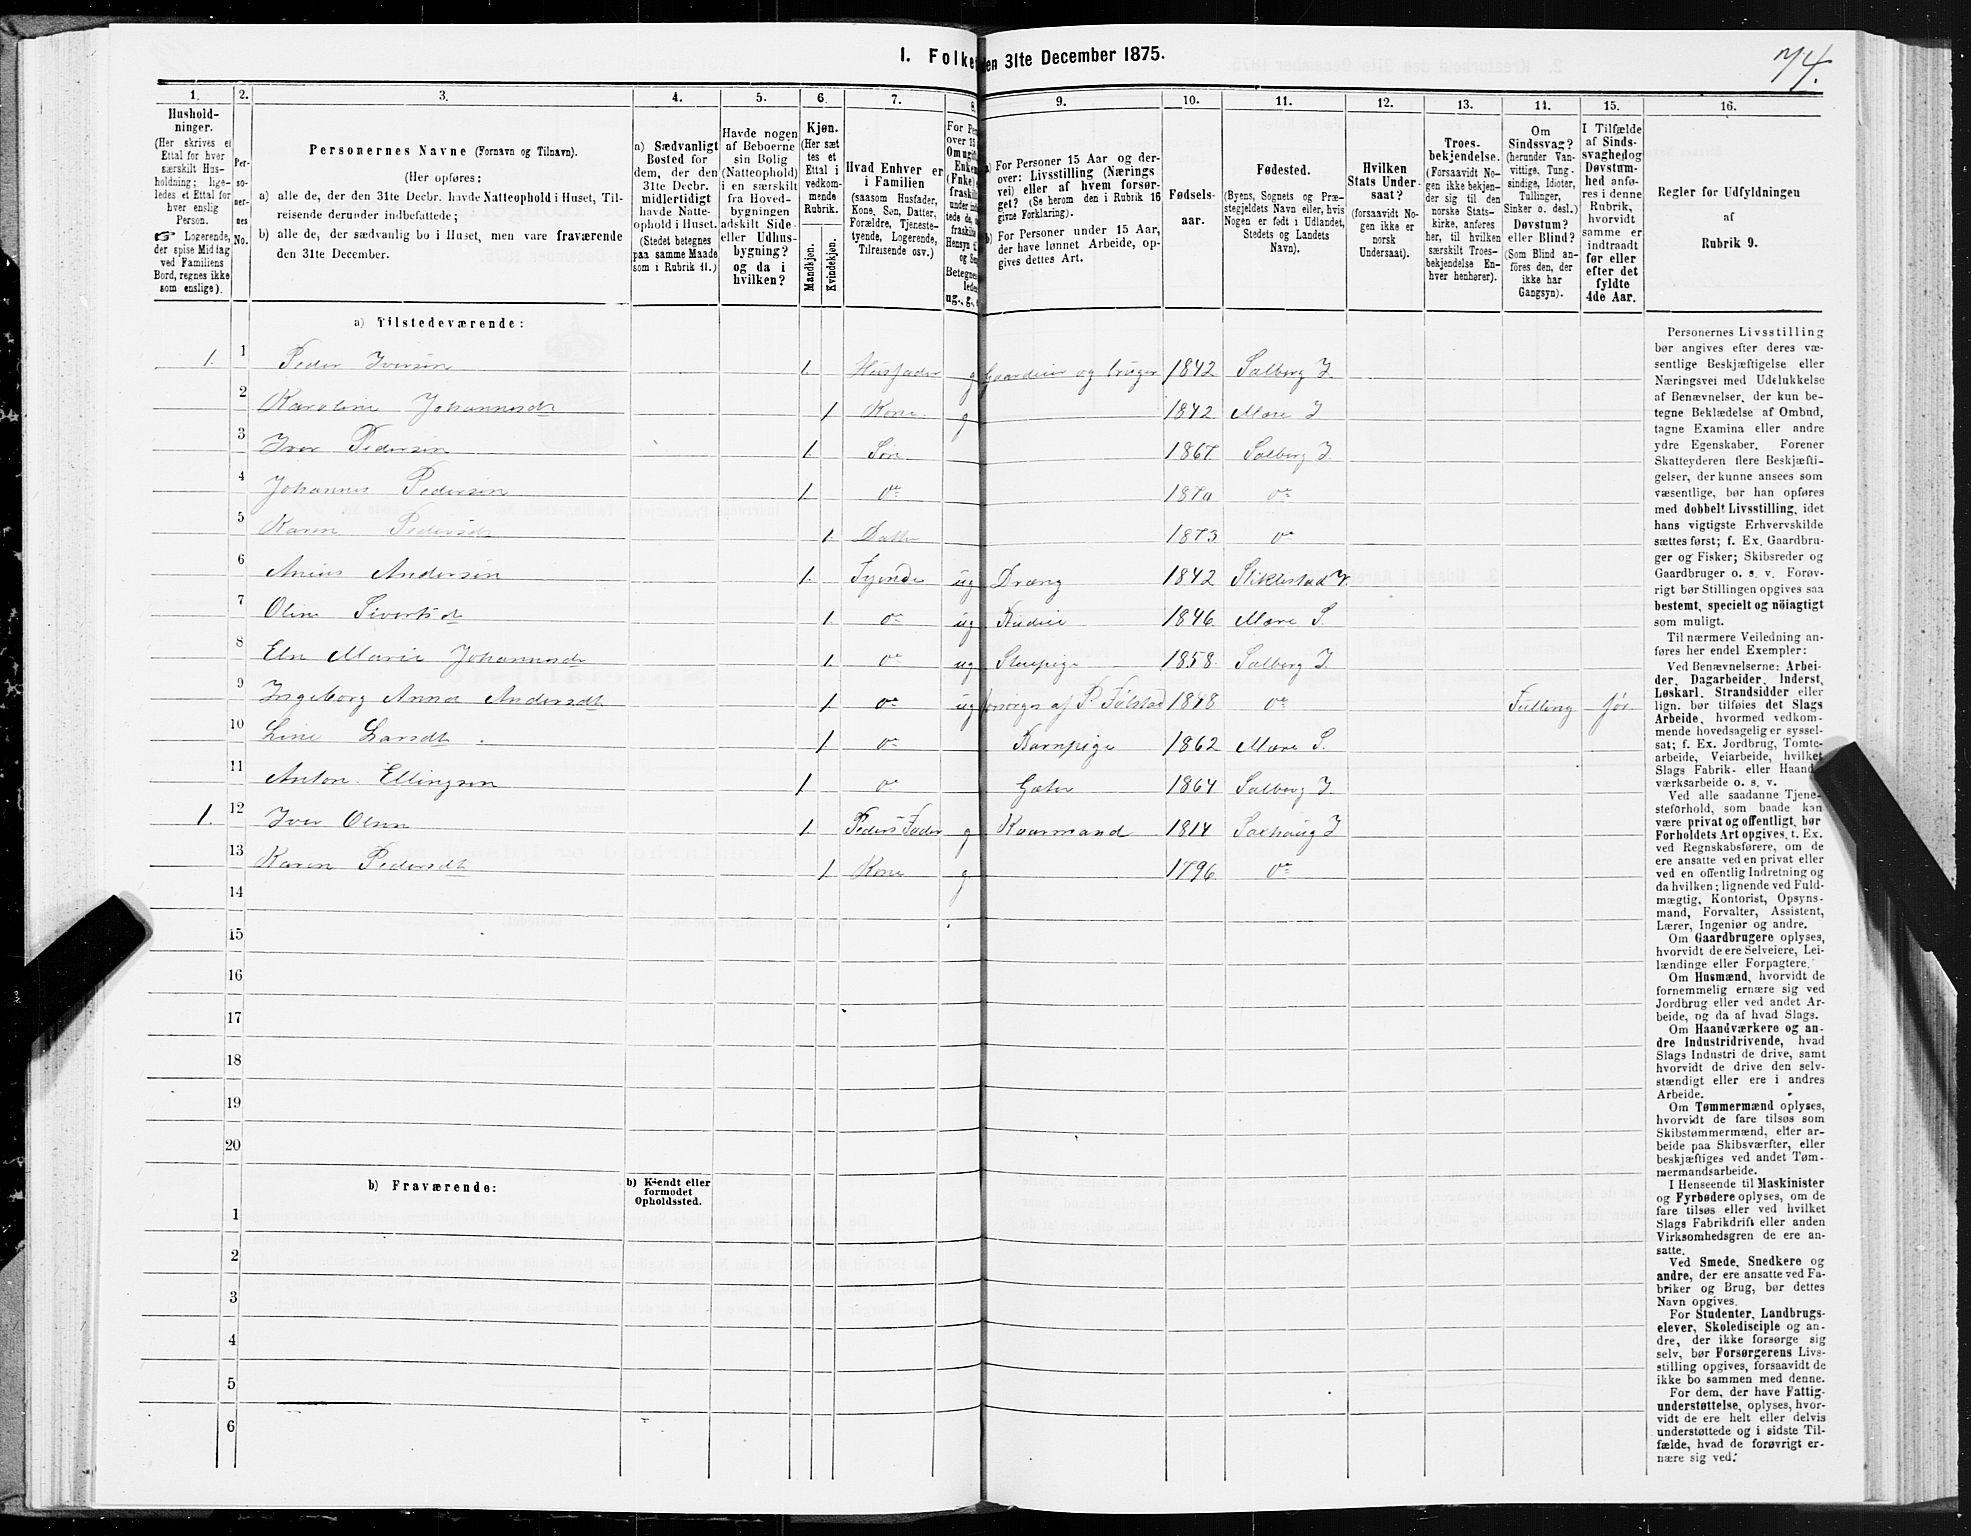 1. Folke
den 31te December 1875.
74.
1. 2. 3. 4. 5. 6. 7. 8. 9. 10. 11. 12. 13. 14. 15. 16.
Hushold-
ninger.
(Her skrives et
Ettal for hver
særskilt Hus-
holdning; lige-
ledes et Ettal for
hver enslig
Person.
☞ Logerende,
der spise Middag
ved Familiens
Bord, regnes ikke
som enslige).
Per-
so-
ner-
nes
No.
Personernes Navne (Fornavn og Tilnavn).
(Her opføres:
a) alle de, der den 31te Decbr. havde Natteophold i Huset, Til-
reisende derunder indbefattede;
b) alle de, der sædvanlig bo i Huset, men vare fraværende
den 31te December.
a) Sædvanligt
Bosted for
dem, der den
31te Decbr.
midlertidigt
havde Natte-
ophold i Huset.
(Stedet betegnes
paa samme Maade
som i Rubrik 11.)
Havde nogen
af Beboerne
sin Bolig
(Natteophold)
i en særskilt
fra Hoved-
bygningen
adskilt Side-
eller Udhus-
bygning?
og da i
hvilken?
Kjøn.
(Her sæt-
tes et
Ettal i
vedkom-
mende
Rubrik.
Mandkjøn.
Kvindekjøn.
Hvad Enhver er
i Familien
(saasom Husfader,
Kone, Søn, Datter,
Forældre, Tjeneste-
tyende, Logerende,
Tilreisende osv.)
For Per
over 15
Om ugift
Enken
(Fnke)
fraskilt
Betegnes
ledes
ug., g.,
a) For Personer 15 Aar og der-
over: Livsstilling (Nærings
vei) eller af hvem forsør-
get? (Se herom den i Rubrik 16
givne Forklaring).
b) For Personer under 15 Aar,
der have lønnet Arbeide, op-
gives dettes Art.
Fødsels-
aar.
Fødested.
(Byens, Sognets og Præ-
stegjeldets Navn eller, hvis
Nogen er født i Udlandet,
Stedets og Landets
Navn).
Hvilken
Stats Under-
saat?
(forsaavidt No-
gen ikke er
norsk
Undersaat).
Troes-
bekjendelse.
(Forsaavidt No-
gen ikke bekjen-
der sig til den
norske Stats-
kirke, anføres
her, til hvilken
særskilt Troes-
bekjendelse En-
hver henhører).
Om
Sindssvag?
(herunder Van-
vittige, Tung-
sindige, Idioter,
Tullinger,
Sinker o. desl.)
Døvstum?
eller Blind?
(Som Blind an-
føres den, der
ikke har
Gangsyn).
I Tilfælde
af Sinds-
svaghed og
Døvstum-
hed anfø-
res i denne
Rubrik,
hvorvidt
samme er
indtraadt
før eller
efter det
fyldte
4de Aar.
Regler for Udfyldningen
af
Rubrik 9.
a) Tilstedeværende:
1. 1 Peder Iversen 1. Husfader g Gaardeier og bruger 1842 Salberg I
2 Karoline Johannesdt 1 Kone g 1842 Mære I
3 Iver Pedersen 1. Søn 1867 Salberg I
4 Johannes Pedersen 1 do 1870 do
5 Karen Pedersdt 1 Datter 1873 do
6 Andersen 1. Tyende ug Dræng 1842 Stiklestad V.
7 Oline Sivertsdt 1. do ug Budeie 1846 Mære S.
8 Eln Marie Johannesdt 1. do ug Stuepige 1858 Salberg I
9 Ingeborg Anna Andersdt 1. do ug forsørges af P. Følstad 1848 do Tulling før
10 Line Larsdt 1 do Barnpige 1862 Mære S.
11 Anton Ellingsen 1 do Gæter 1864 Salberg I
1. 12 Iver Olsen 1. Peders Fader g Kaarmand 1814 Saxhaug I
13 Karen Pedersdt 1. Kone g 1796 do
14
15
16
17
18
19
20
b) Fraværende:
b) Kjendt eller
formodet
Opholdssted.
1
2
3
4
5
6
Personernes Livsstilling
bør angives efter deres væ-
sentlige Beskjæftigelse eller
Næringsvei med Udelukkelse
af Benævnelser, der kun be-
tegne Beklædelse af Ombud,
tagne Examina eller andre
ydre Egenskaber. Forener
Skatteyderen flere Beskjæfti-
gelser, der kunne ansees som
væsentlige, bør han opføres
med dobbelt Livsstilling, idet
hans vigtigste Erhvervskilde
sættes først; f. Ex. Gaardbru-
ger og Fisker; Skibsreder og
Gaardbruger o. s. v. Forøv-
rigt bør Stillingen opgives saa
bestemt, specielt og nöiagtigt
som muligt.
Til nærmere Veiledning an-
føres her endel Exempler:
Ved Benævnelserne: Arbei-
der, Dagarbeider, Inderst,
Løskarl, Strandsidder eller
lign. bør tilføies det Slags
Arbeide, hvormed vedkom-
mende hovedsagelig er syssel-
sat; f. Ex. Jordbrug, Tomte-
arbeide, Veiarbeide, hvilket
Slags Fabrik- eller Haand-
værksarbeide o. s. v.
Ved alle saadanne Tjene-
steforhold, som baade kan
være privat og offentligt, bør
Forholdets Art opgives, t. Ex.
ved Regnskabsførere, om de
ere ansatte ved en privat eller
ved en offentlig Indretning og
da hvilken; lignende ved Fuld-
mægtig, Kontorist, Opsyns-
mand, Forvalter, Assistent,
Lærer, Ingeniør og andre.
Om Gaardbrugere oplyses,
hvorvidt de ere Selveiere, Lei-
lændinge eller Forpagtere.
Om Husmænd, hvorvidt de
fornemmelig ernære sig ved
Jordbrug eller ved andet Ar-
beide, og da af hvad Slags.
Om Haandværkere og an-
dre Industridrivende, hvad
Slags Industri de drive, samt
hvorvidt de drive den selv-
stændigt eller ere i andres
Arbeide.
Om Tømmermænd oplyses,
hvorvidt de fare tilsøs som
Skibstømmermænd, eller ar-
beide paa Skibsværfter, eller
beskjæftiges ved andet Tøm-
mermandsarbeide.
I Henseende til Maskinister
og Fyrbødere oplyses, om de
fare tilsøs eller ved hvilket
Slags Fabrikdrift eller anden
Virksomhedsgren de ere an-
satte.
Ved Smede, Snedkere og
andre, der ere ansatte ved Fa-
briker og Brug, bør dettes
Navn opgives.
For Studenter, Landbrugs-
elever, Skoledisciple og an-
dre, der ikke forsørge sig
selv, bør Forsørgerens Livs-
stilling opgives, forsaavidt de
ikke bo sammen med denne.
For dem, der have Fattig-
understøttelse, oplyses, hvor-
vidt de ere helt eller delvis
understøttede og i sidste Til-
fælde, hvad de forøvrigt er-
nære sig ved.